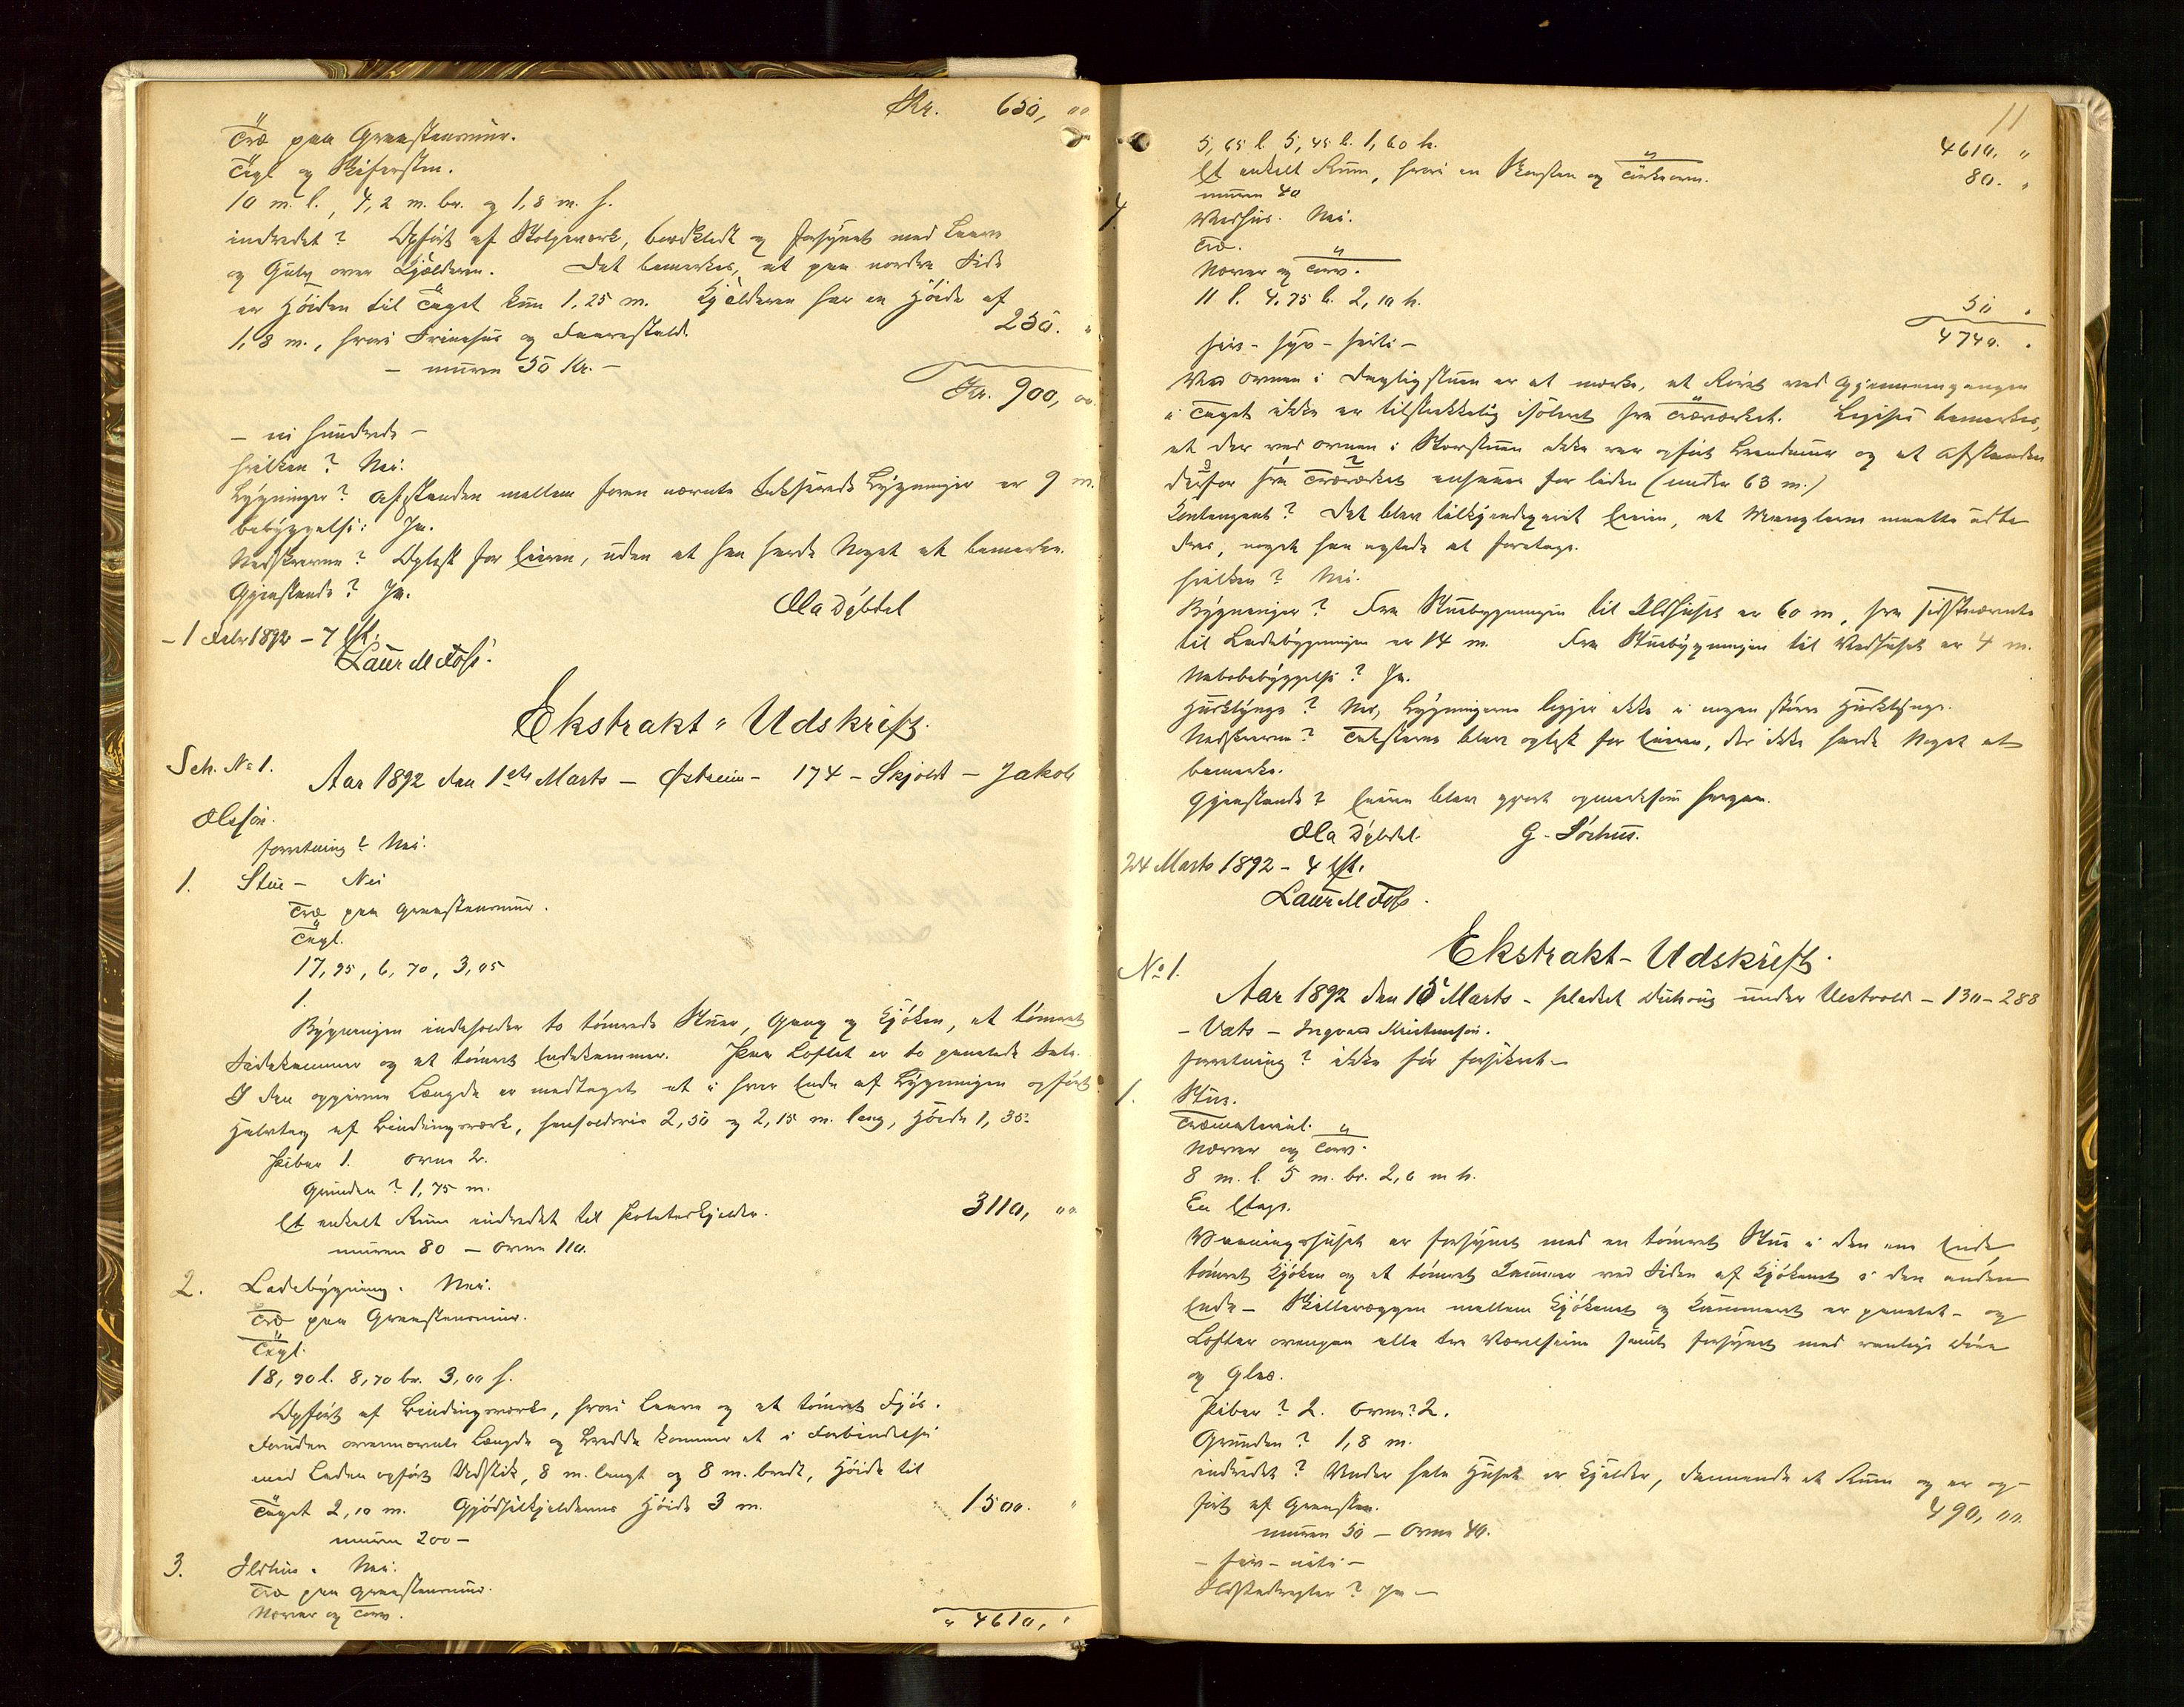 Kr. 650, 00
Træ paa Graastensmur.
Tegl og Skifersten.
10 m. l., 7,2 m. br. og 1,8 m. h.
indredet? Opført af Stolpeværk, bordklædt og forsynet med Laave
og Gulv over Kjælderen. Det bemerkes, at paa nordre Side
er Høiden til Taget kun 1,25 m. Kjælderen har en Høide af
1,8 m., hvori Svinehus og Faarestald. 250. "
– muren 50 Kr. –
Kr. 900, 00
– ni hundrede –
hvilken? Nei.
Bygninger? Afstanden mellem foran nævnte Bygninger er 9 m.
bebyggelse: Ja.
Nedskrevne? Oplæst for Eieren, uden at han havde Noget at bemerke.
Gjenstande? Ja.
Ola Dybdal
– 1 Febr 1892 – 7 Eft.
Laur M Foss.
Ekstrakt-Udskrift.
Sch. No 1. Aar 1892 den 1ste Marts – Østreim – 174 – Skjold – Jakob
Olesen.
forretning? Nei.
1. Stue – Nei
Træ paa Graastensmur.
Tegl.
17,95, 6,70, 3,05
1.
Bygningen indeholder to tømrede Stuer, Gang og Kjøken, et tømret
Sidekammer og et tømret Endekammer. Paa Loftet er to panelede Sale.
I den opgivne Længde er medtaget et i hver Ende af Bygningen opført
Halvtag af Bindingsværk, henholdsvis 2,50 og 2,15 m. lang, Høide 1,35.
Piber 1. Ovne 2.
Grunden? 1,75 m.
Et enkelt Rum indredet til Poteteskjælder. 3110, 00
muren 80 – Ovne 110.
2. Ladebygning. Nei.
Træ paa Graastensmur.
Tegl.
18,90 l. 8,70 br. 3,00 h.
Opført af Bindingsværk, hvori Laave og et tømret Fjøs.
Foruden ovennævnte Længde og Bredde kommer et i Forbindelse
med Laden opført Udstik, 8 m. langt og 8 m. bredt, Høide til
Taget 2,10 m. Gjødselkjelderens Høide 3 m. 1500. "
muren 200 –
3. Ildhus. Nei.
Træ paa Graastensmur.
Næver og Torv.
" 4610, "
11
5,65 l. 5,45 b. 1,60 h. 4610. "
Et enkelt Rum, hvori en Skorsten og Tørkeovn. 80. "
muren 40
4. Vedhus. Nei.
Træ.
Næver og Torv.
11 l. 4.75 b. 2,10 h. 50 "
fire – syv – firti – 4740. "
Ved Ovnen i Dagligstuen er at mærke, at Røret ved Gjennemgangen
i Taget ikke er tilstrækkelig isoleret fra Træværket. Ligesaa bemerkes,
at der ved Ovnen i Storstuen ikke var opført Brandmur og at Afstanden
derfor fra Træværket ansees for liden (under 63 m.)
Kontingent? Det blev tilkjendegivet Eieren, at Manglerne maatte udbe
dres, noget han agtede at foretage.
hvilken? Nei.
Bygninger? Fra Stuebygningen til Ildhuset er 60 m, fra sidstnævnte
til Ladebygningen er 14 m. Fra Stuebygningen til Vedhuset er 4 m.
Nabobebyggelse? Ja.
Husklynge? Nei, Bygningerne ligger ikke i nogen større Husklynge.
Nedskrevne? Taksterne blev oplæst for Eieren, der ikke havde Noget at
bemerke.
Gjenstande? Eieren blev gjort opmerksom herpaa.
Ola Dybdal. G. Sørhus.
24 Marts 1892 – 4 Eft.
Laur M Foss.
Ekstrakt-Udskrift.
No 1. Aar 1892 den 15 Marts – pladset under Vestvold – 130 – 288
– Vats – Ingvald Kristensen.
forretning? ikke før forsikret –
1. Stue.
Træmaterial.
Næver og Torv.
8 m. l. 5 m. br. 2,0 m h.
En Etage.
Vaaningshuset er forsynet med en tømret Stue i den ene Ende
tømret Kjøken og et tømret Kammer ved Siden af Kjøkenet i den anden
Ende – Skillevæggen mellem Kjøkenet og Kammeret er panelet – og
Lofter ovenpaa alle tre Værelserne samt forsynet med vanlige Døre
og Glas.
Piber? 2. Ovne? 2.
Grunden? 1,8 m.
indredet? Under hele Huset er Kjælder, dannende et Rum og er op-
ført af Graasten. 490, 00.
muren 50 – Ovne 40.
– fire – niti –
Ildstedregler? Ja –